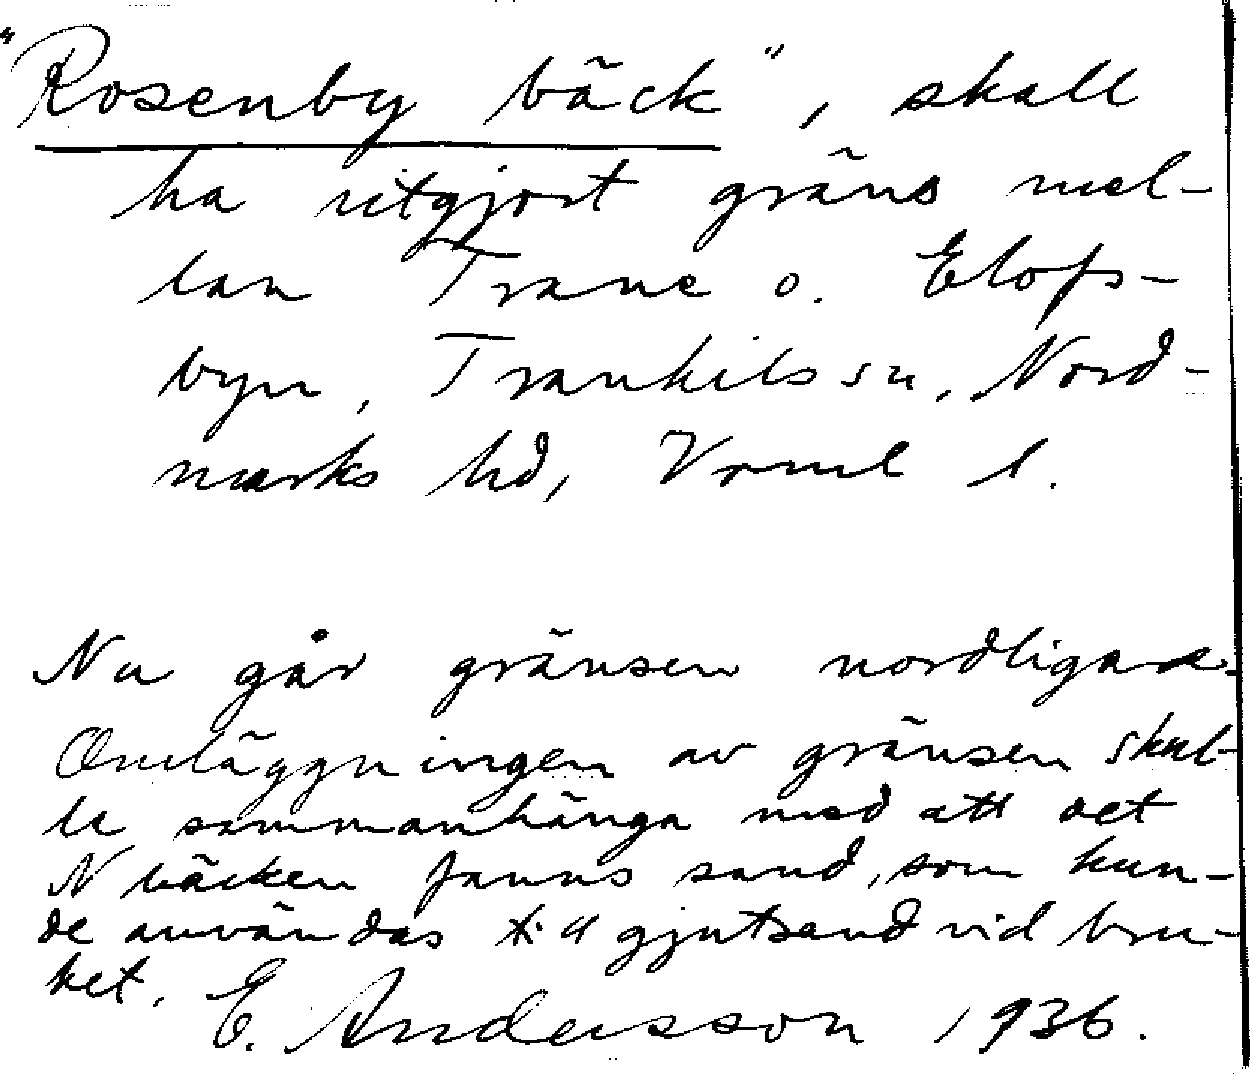 "Rosenby bäck", skall
ha utgjort gräns mel-
lan Trane o. Elofs-
byn, Trankils sn, Nord-
marks hd, Vrml l.
Nu går gränsen nordligare.
Omläggningen av gränsen skul-
le sammanhänga med att det
N bäcken fanns sand, som kun-
de användas till gjutsand vid bru-
ket.
E. Andersson 1936.